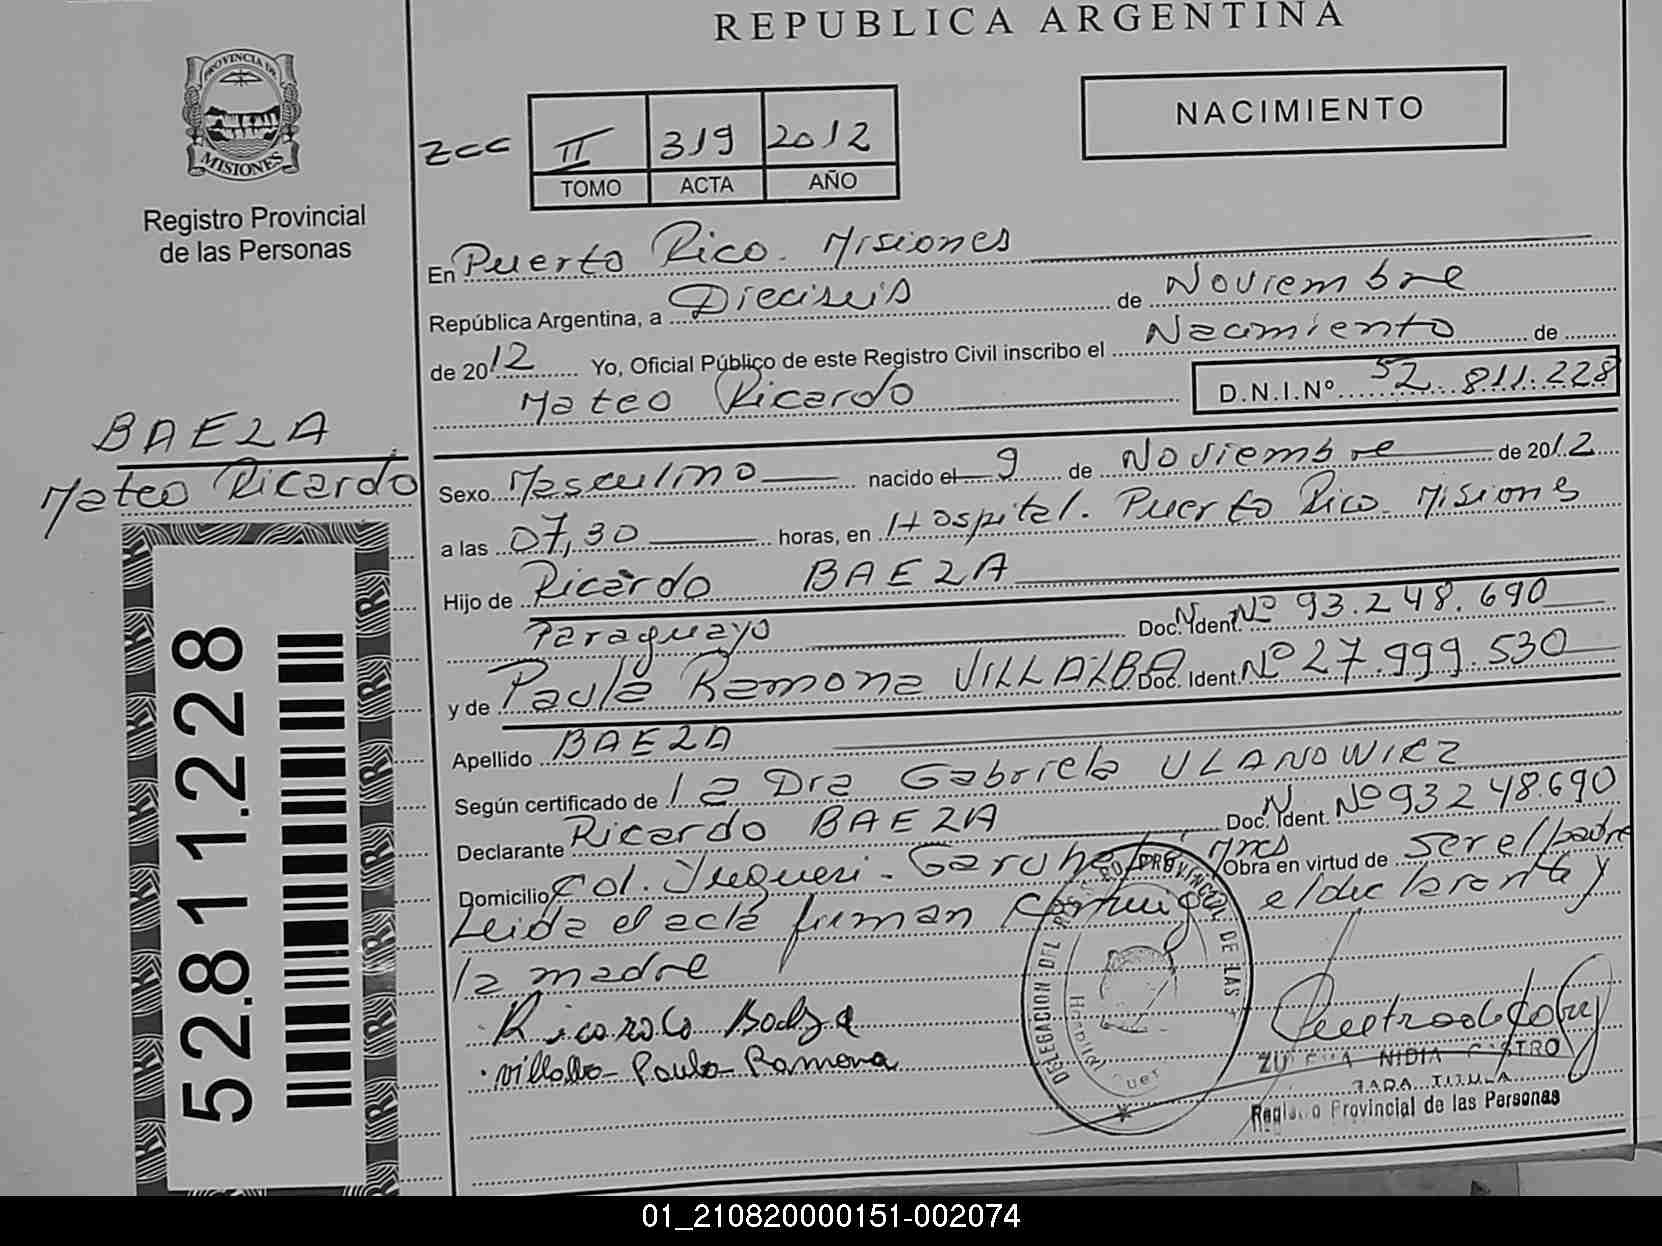 REPUBLICA ARGENTINA
PROVINCIA DE
MISIONES
Registro Provincial
de las Personas
NACIMIENTO
zcc II 319 2012
TOMO ACTA AÑO
En Puerto Rico. Misiones
República Argentina, a Dieciseis de Noviembre
de 2012 Yo, Oficial Público de este Registro Civil inscribo el Nacimiento de
Mateo Ricardo D.N.I.Nº 52.811.228
BAEZA
Mateo Ricardo
Sexo Masculino nacido el 9 de Noviembre de 2012
a las 07,30 horas, en Hospital. Puerto Rico Misiones
Hijo de Ricardo BAEZA
Paraguayo Doc. Ident. Nº 93.248.690
y de Paula Ramona VILLALBA Doc. Ident. Nº 27.999.530
Apellido BAEZA
Según certificado de la Dra Gabriela ULANOWICZ
Declarante Ricardo BAEZA Doc. Ident. Nº 93248690
Domicilio Col. Yuqueri - Garuhape Mnes Obra en virtud de ser el padre
Leida el acta firman conmigo el declarante y
la madre
Ricardo Baeza
Villalba Paula Ramona
52.811.228
DELEGACION DEL PROVINCIAL DE LAS
NIDIA CASTRO
Registro Provincial de las Personas
01_210820000151-002074